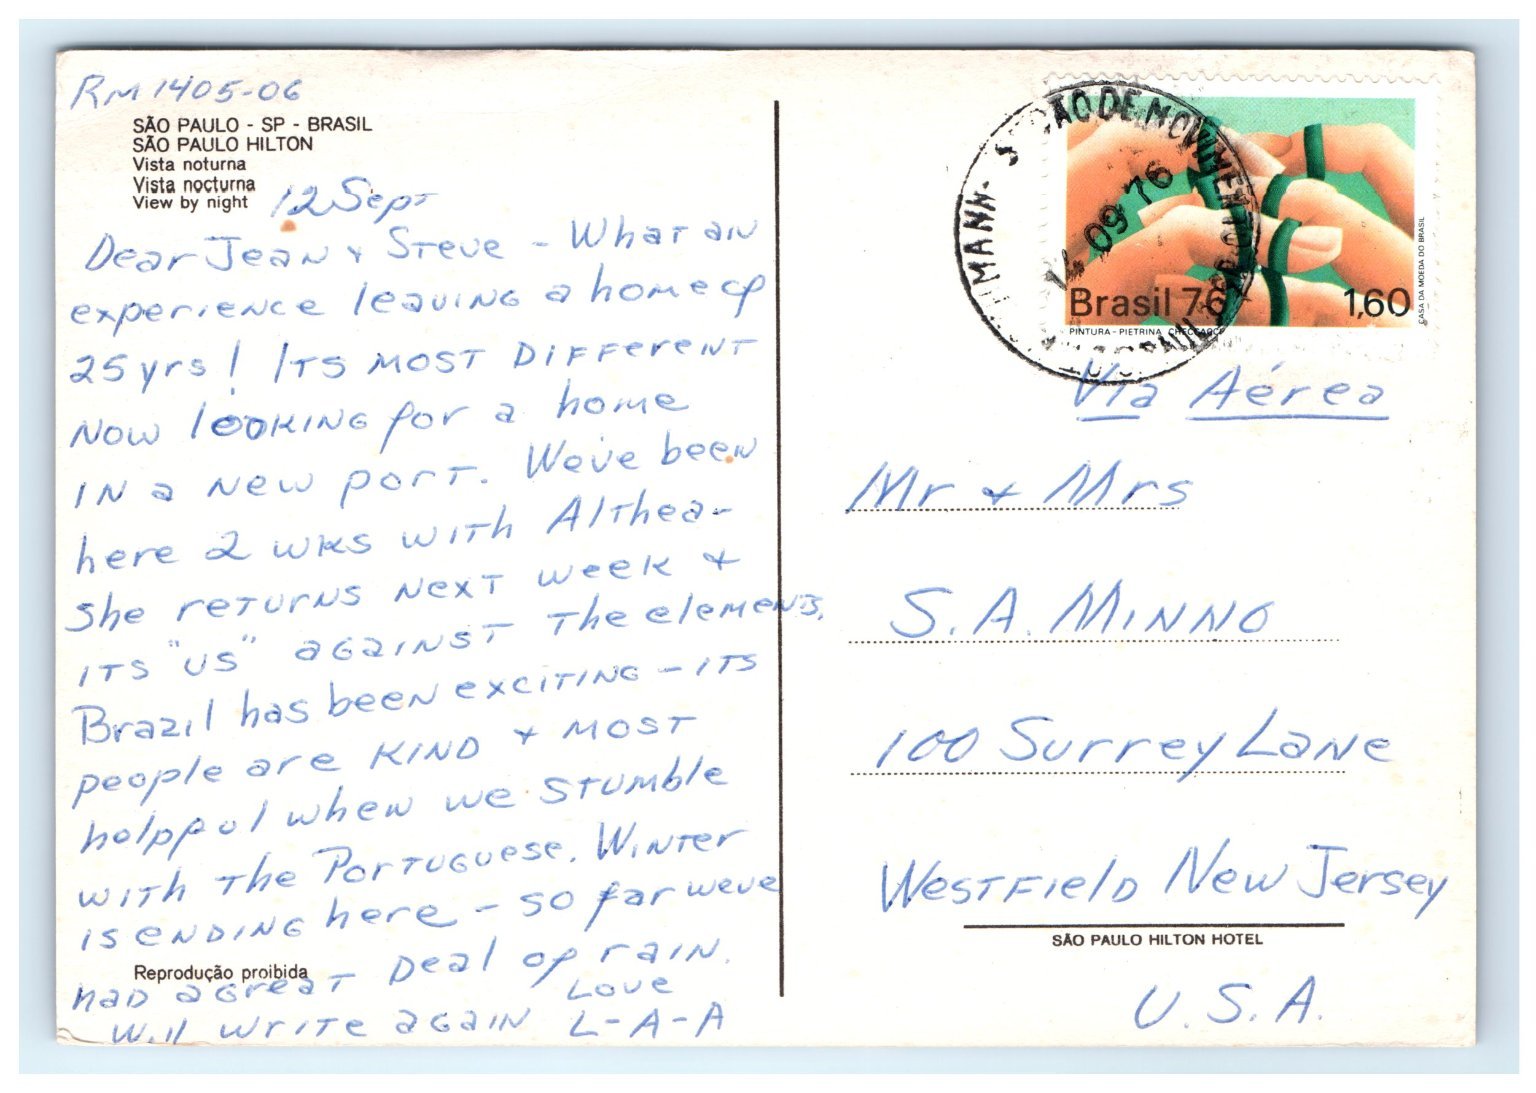 RM 1405-06
SÃO PAULO - SP - BRASIL
SÃO PAULO HILTON
Vista noturna
Vista nocturna
View by night
12 Sept
Dear Jean & Steve - What an
experience leaving a home of
25 yrs! Its most different
now looking for a home
in a new port. We've been
here 2 wks with Althea -
she returns next week &
its "us" against the elements.
Brazil has been exciting - its
people are kind & most
helpful when we stumble
with the Portuguese. Winter
is ending here - so far weve
had a great deal of rain.
Reprodução proibida
Will write again
Love
L-A-A
DE MOVIMENTO
09 76
Brasil 76
1,60
PINTURA - PIETRINA CHECCACCI
CASA DA MOEDA DO BRASIL
Via Aérea
Mr & Mrs
S. A. Minno
100 Surrey Lane
Westfield New Jersey
SÃO PAULO HILTON HOTEL
U.S.A.